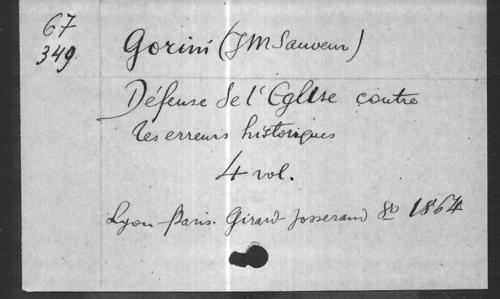 67
349
Gorini (JM Sauveur)
Défense de l'Eglise contre
les erreurs historiques
4 vol.
Lyon Paris. Girard Josserand 8º 1864